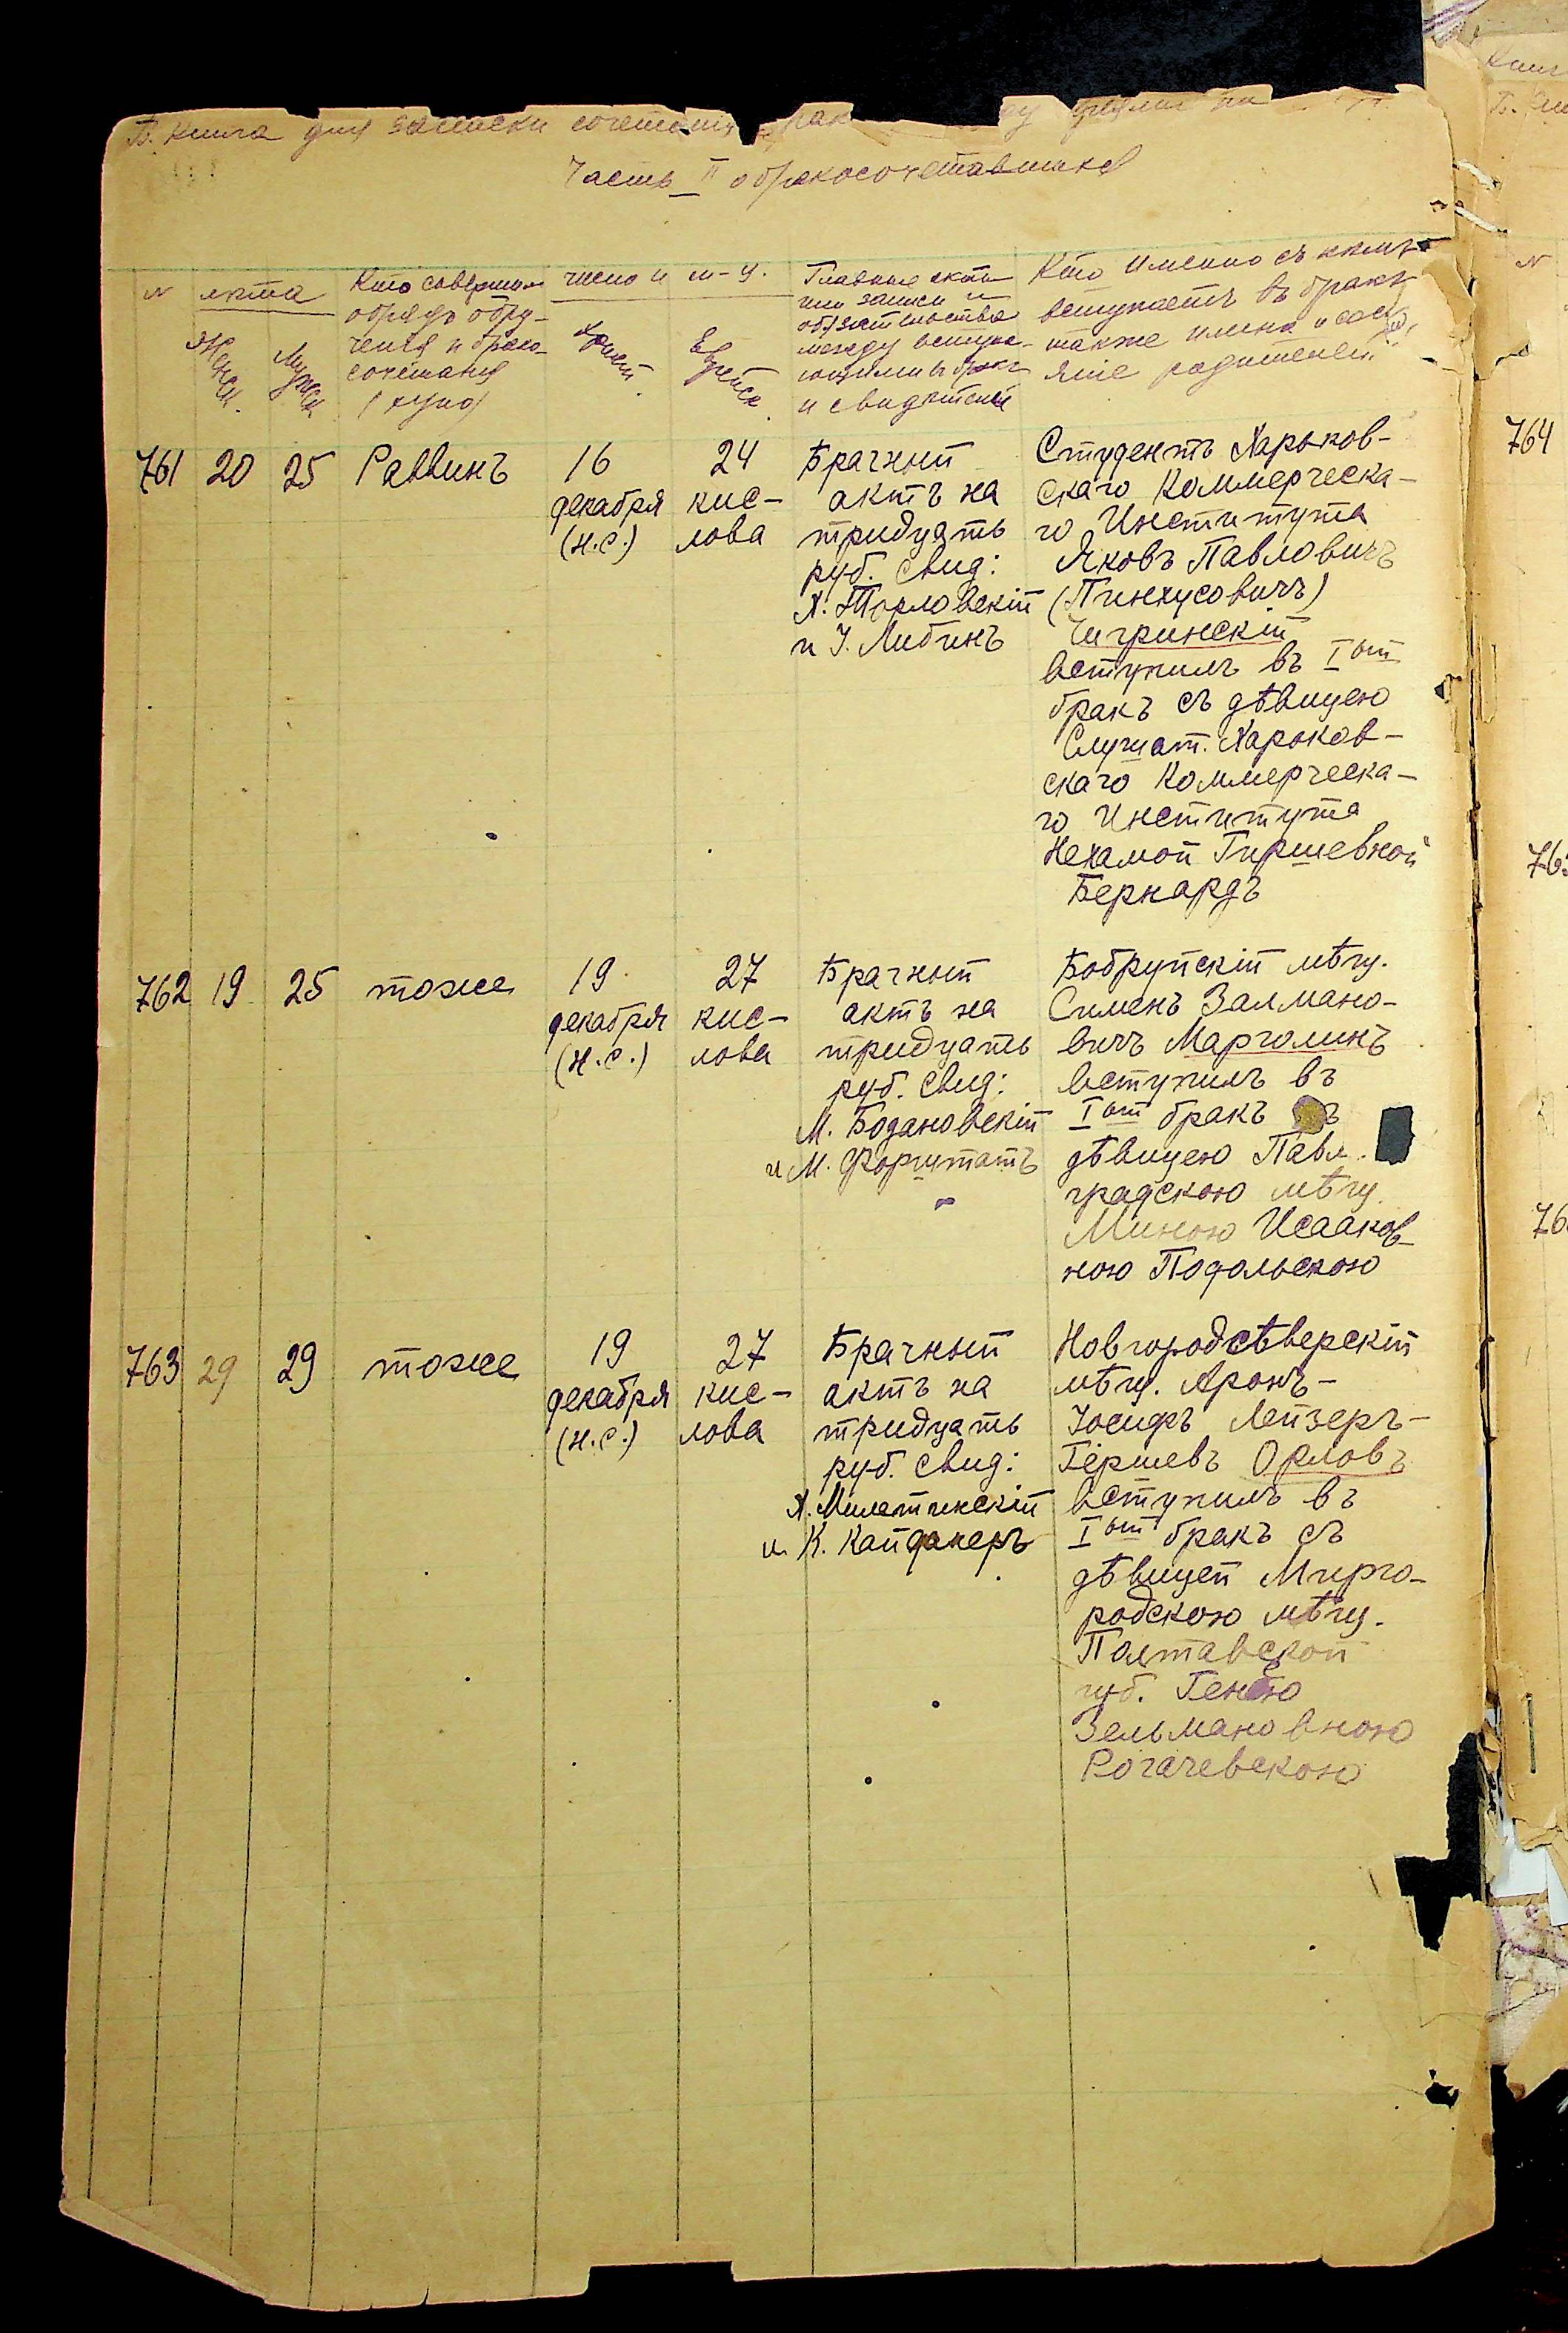 Б. Книга для записки сочетанія
Часть II о бракосочетавшихся
N
лѣта
Женск.
Мужск.
Кто совершал
обрядъ обру-
ченія и брако-
сочетанія
(хупа)
число и м-ц.
Христ.
Еврейск.
Главные акты
или записи и
обязательства
между вступа-
ющими въ бракъ
и свидѣтели
Кто именно съ кѣмъ
вступаетъ въ бракъ
также имена и сост
яніе родителей
761
20
25
Раввинъ
16
декабря
(н.с.)
24
кис-
лова
Брачный
актъ на
тридцать
руб. Свид:
Х. Торловскій
и І. Либинъ
Студентъ Харьков-
скаго Коммерческа-
го Института
Яковъ Павловичъ
(Пинхусовичъ)
Чигринскій
вступилъ въ Iый
бракъ съ дѣвицею
Слушат. Харьков-
скаго Коммерческа-
го Института
Нехамой Гиршевной
Бернардъ
762
19
25
тоже
19
декабря
(н.с.)
27
кис-
лова
Брачный
актъ на
тридцать
руб. Свид:
М. Бодановскій
и М. Форштатъ
Бобруйскій мѣщ.
Сименъ Залмано-
вичъ Марголинъ
вступилъ въ
Iый бракъ
дѣвицею Павл.
градскою мѣщ.
Миною Исааков-
ною Подольскою
763
29
29
тоже
19
декабря
(н.с.)
27
кис-
лова
Брачный
актъ на
тридцать
руб. Свид:
Х. Милетинскій
и К. Кайданеръ
Новгородсѣверскій
мѣщ. Аронъ-
Іосифъ Лейзеръ-
Гершевъ Орловъ
вступилъ въ
Iый бракъ съ
дѣвицей Мирго-
родскою мѣщ.
Полтавской
губ. Генею
Зельмановною
Рогачевскою
764